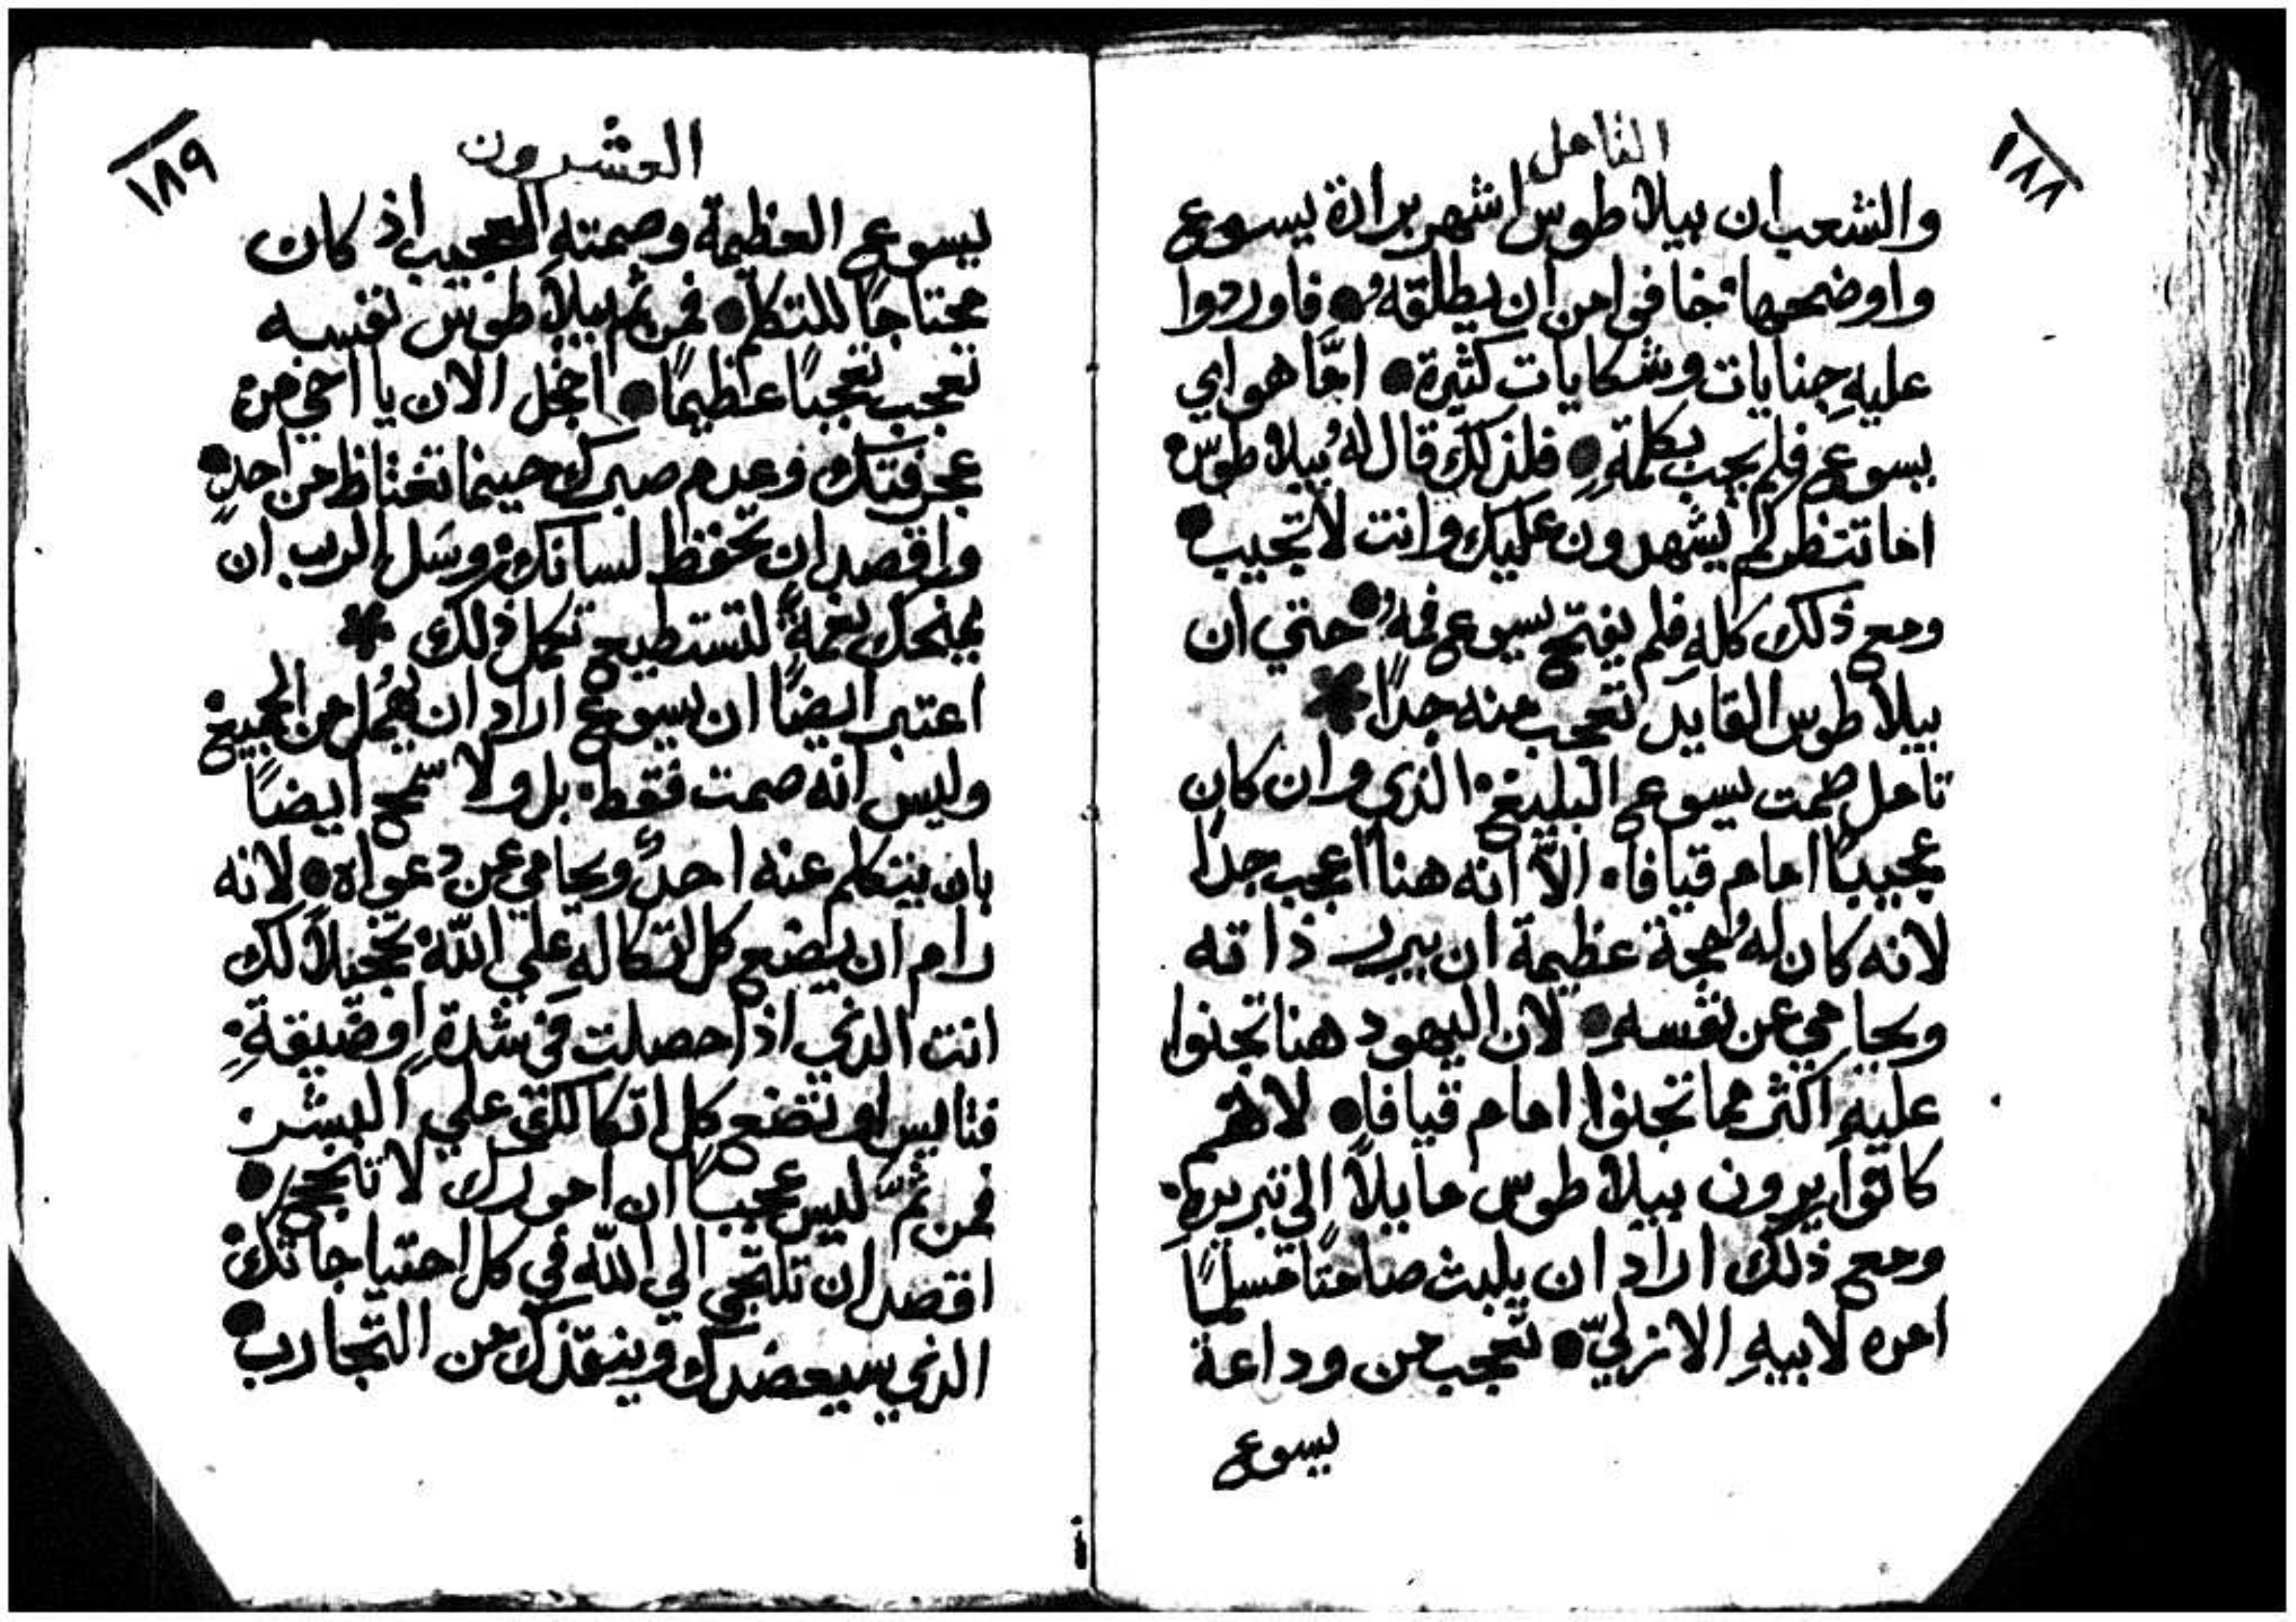 ١٨٨
التامل
والشعب ان بيلاطوس اشهر برارة يسوع
واوضحها خافوا من ان يطلقهُ • فاوردوا
عليهِ جنايات وشكايات كثيرة • امّا هو اي
يسوع فلم يجب بكلمةٍ • فلذلك قال لهُ بيلاطوس
اما تنظر كم يشهدون عليك وانت لا تجيب •
ومع ذلك كلهِ فلم يفتح يسوع فمهُ • حتي ان
بيلاطوس القايد تعجب منه جدًا *
تامل صمت يسوع البليغ الذي وان كان
عجيبًا امام قيافا • الاَّ انه هنا اعجب جدًا
لانه كان لهُ حجة عظيمة ان يبرر ذاته
ويحامي عن نفسهِ • لان اليهود هنا تجنوا
عليهِ اكثر مما تجنوا امام قيافا • لانهم
كانوا يرون بيلاطوس مايلاً الي تبريره •
ومع ذلك اراد ان يلبث صامتًا مسلمًا
امره لابيهِ الازليّ • تعجب من وداعة
يسوع
١٨٩
العشرون
يسوع العظيمة وصمتهِ العجيب اذ كان
محتاجًا للتكلم • فمن ثم بيلاطوس نفسه
تعجب تعجبًا عظيمًا • اخجل الان يا اخي من
عجرفتك وعدم صبرك حينما تغتاظ من احدٍ •
واقصد ان تحفظ لسانك وسَل الرب ان
يمنحك نعمةً لتستطيع تكمل ذلك *
اعتبر ايضًا ان يسوع اراد ان يُهمل من الجميع
وليس انه صمت فقط • بل ولا سمح ايضًا
بان يتكلم عنه احدٌ ويحامي عن دعواه • لانه
رام ان يضع كل اتكاله علي اللّه تخجيلاً لك
انت الذي اذا حصلت في شدةٍ او ضيقةٍ
فتايس او تضع كل اتكالك علي البشر
فمن ثمَّ ليس عجيبًا ان امورك لا تنجح •
اقصد ان تلتجي الي اللّه في كل احتياجاتك
الذي سيعضدك وينقذك من التجارب •